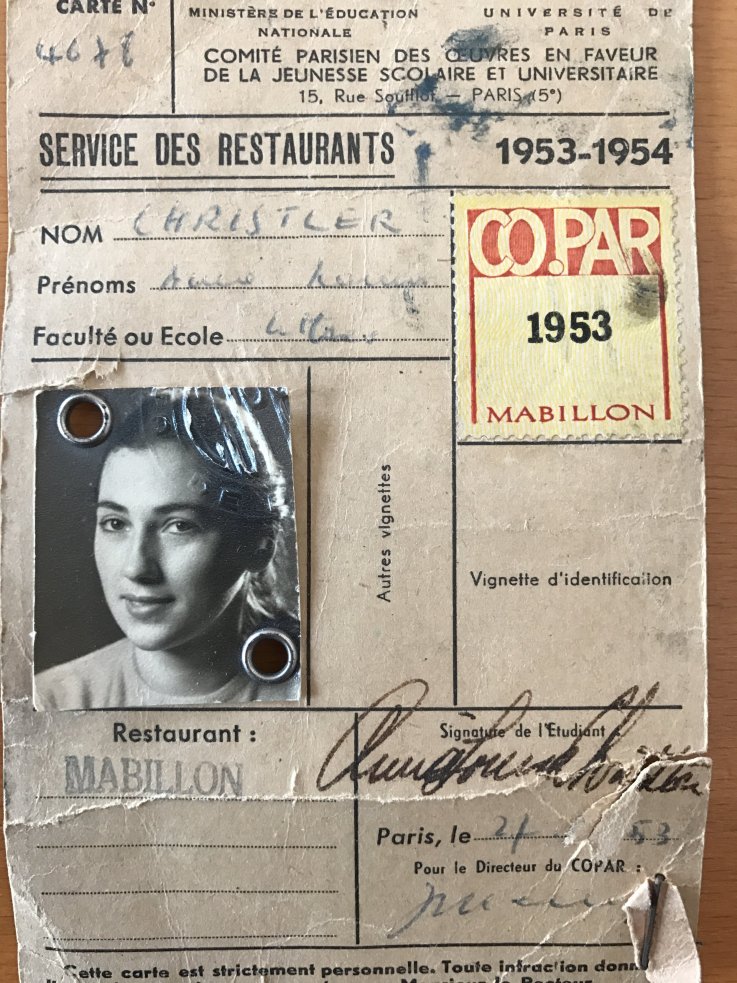 CARTE N°
4678
MINISTÈRE DE L'ÉDUCATION
NATIONALE
UNIVERSITÉ DE
PARIS
COMITÉ PARISIEN DES ŒUVRES EN FAVEUR
DE LA JEUNESSE SCOLAIRE ET UNIVERSITAIRE
15, Rue Soufflot — PARIS (5e)
SERVICE DES RESTAURANTS
1953-1954
NOM CHRISTLER
Prénoms Anne
Faculté ou Ecole Lettres
CO.PAR
1953
MABILLON
Autres vignettes
Vignette d'identification
Restaurant :
MABILLON
Signature de l'Etudiant :
Anne Louise
Paris, le 21 53
Pour le Directeur du COPAR :
Cette carte est strictement personnelle. Toute infraction
Monsieur le Recteur